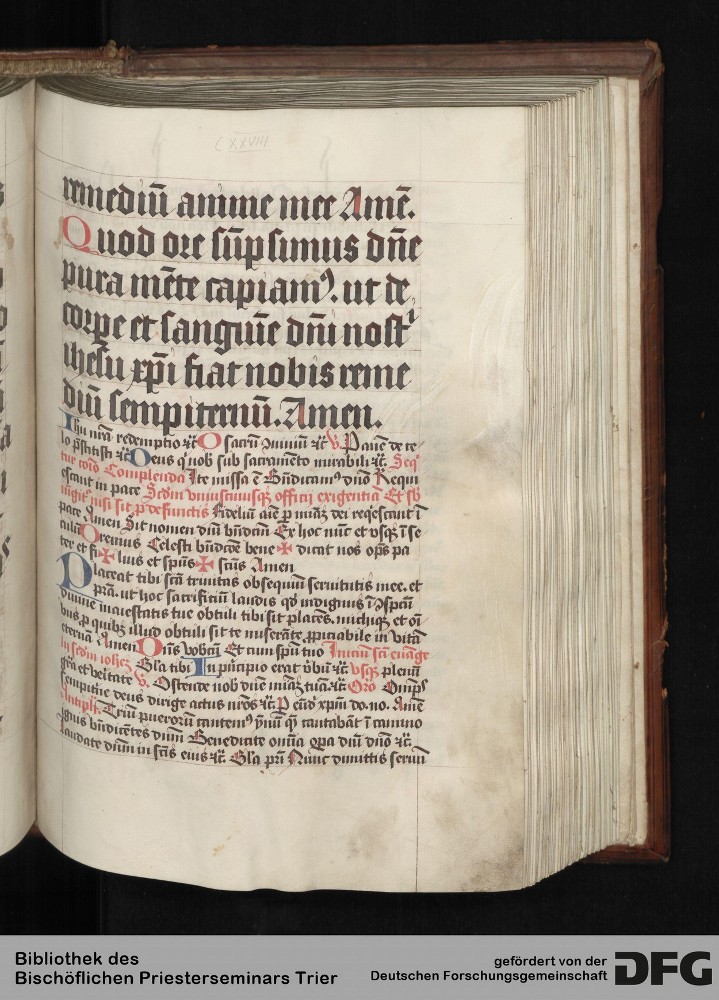 CXXVIII
remediū anime mee Amē.
Quod ore sūpsimus dñe
pura mēte capiamꝰ. ut de
corpe et sanguīe dñi nostⁱ
ihesu xp̄i fiat nobis reme
diū sempiternū. Amen.
Ihu nr̄a redemptio ⁊c̄ O sacrū ⁊c̄ v. Panē de ce
lo p̄stitisti ⁊c̄ Deus q' nob sub sacramēto mirabili ⁊c̄. Seq̄
Complenda Ite missa ē Bn̄dicamꝰ dn̄o Requi
escant in pace Scdm uniuscuiusqꝫ officij exigentiā Et sb
nisi sit p̄ defunctis Fidelīu aīe p̄ mīaꝫ dei reqescant ī
pace Amen Sit nomen dn̄i bn̄dcm̄ Ex hoc nūc et vsqꝫ ī se
culū Oremus Celesti bn̄dcōe bene✠ dicat nos op̄s pa
ter et fi✠ lius et spūs✠ scūs Amen
Placeat tibi scā trinitas obsequiū seruitutis mee. et
p̄sta. ut hoc sacrificiū laudis qd̄ indignus ī ɔspcū
diuine maiestatis tue obtuli tibi sit placēs. michiqꝫ et oī
bus p̄ quibꝫ illud obtuli sit te miserāte p̄piciabile in vitā
eternā Amen Dn̄s vobcū Et cum spū tuo Iniciū scī euāge
lij scdm iohēꝫ Gl̄a tibi In pn̄cipio erat v̄bū ⁊c̄ vsqꝫ plenū
gr̄a et veritate v. Ostende nob dn̄e mīaꝫ tuā ⁊c̄ Oro Omp̄s
sempitne deus dirige actus nr̄os ⁊c̄ P eūd xpm̄ do. no. Amē
Antiph. Triū pueroꝝ cantemꝰ ȳnū q̄ cantabāt ī camino
ignis bn̄dicētes dn̄m Benedicite om̄ia opa dn̄i dn̄o ⁊c̄
Laudate dn̄m in scīs eius ⁊c̄ Gl̄a pr̄i Nūc dimittis seruū
Bibliothek des
Bischöflichen Priesterseminars Trier
gefördert von der
Deutschen Forschungsgemeinschaft DFG